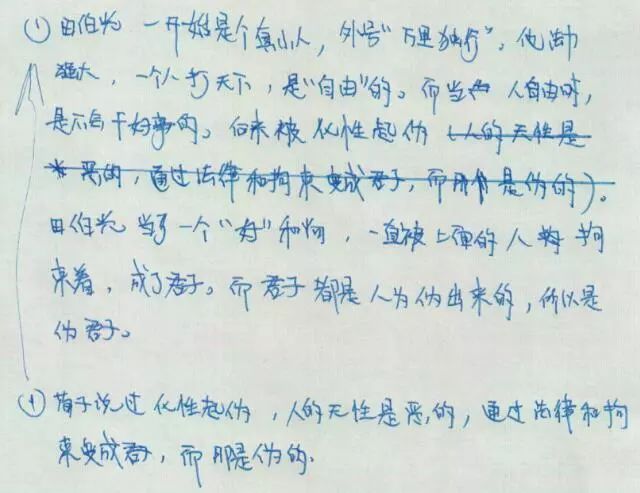 ① 田伯光 一开始是个真小人，外号“万里独行”，他勐
强大，一个人打天下，是“自由”的。而当 人自由时，
是不会干好事的。后来被化性起伪（人的天性是
恶的，通过法律和拘束变成君子，而 是伪的）。
田伯光 当了一个“好”和尚，一直被上面的人 拘
束着，成了君子。而君子都是人为伪出来的，所以是
伪君子。
① 荀子说过化性起伪，人的天性是恶的，通过法律和拘
束变成君子，而 是伪的.